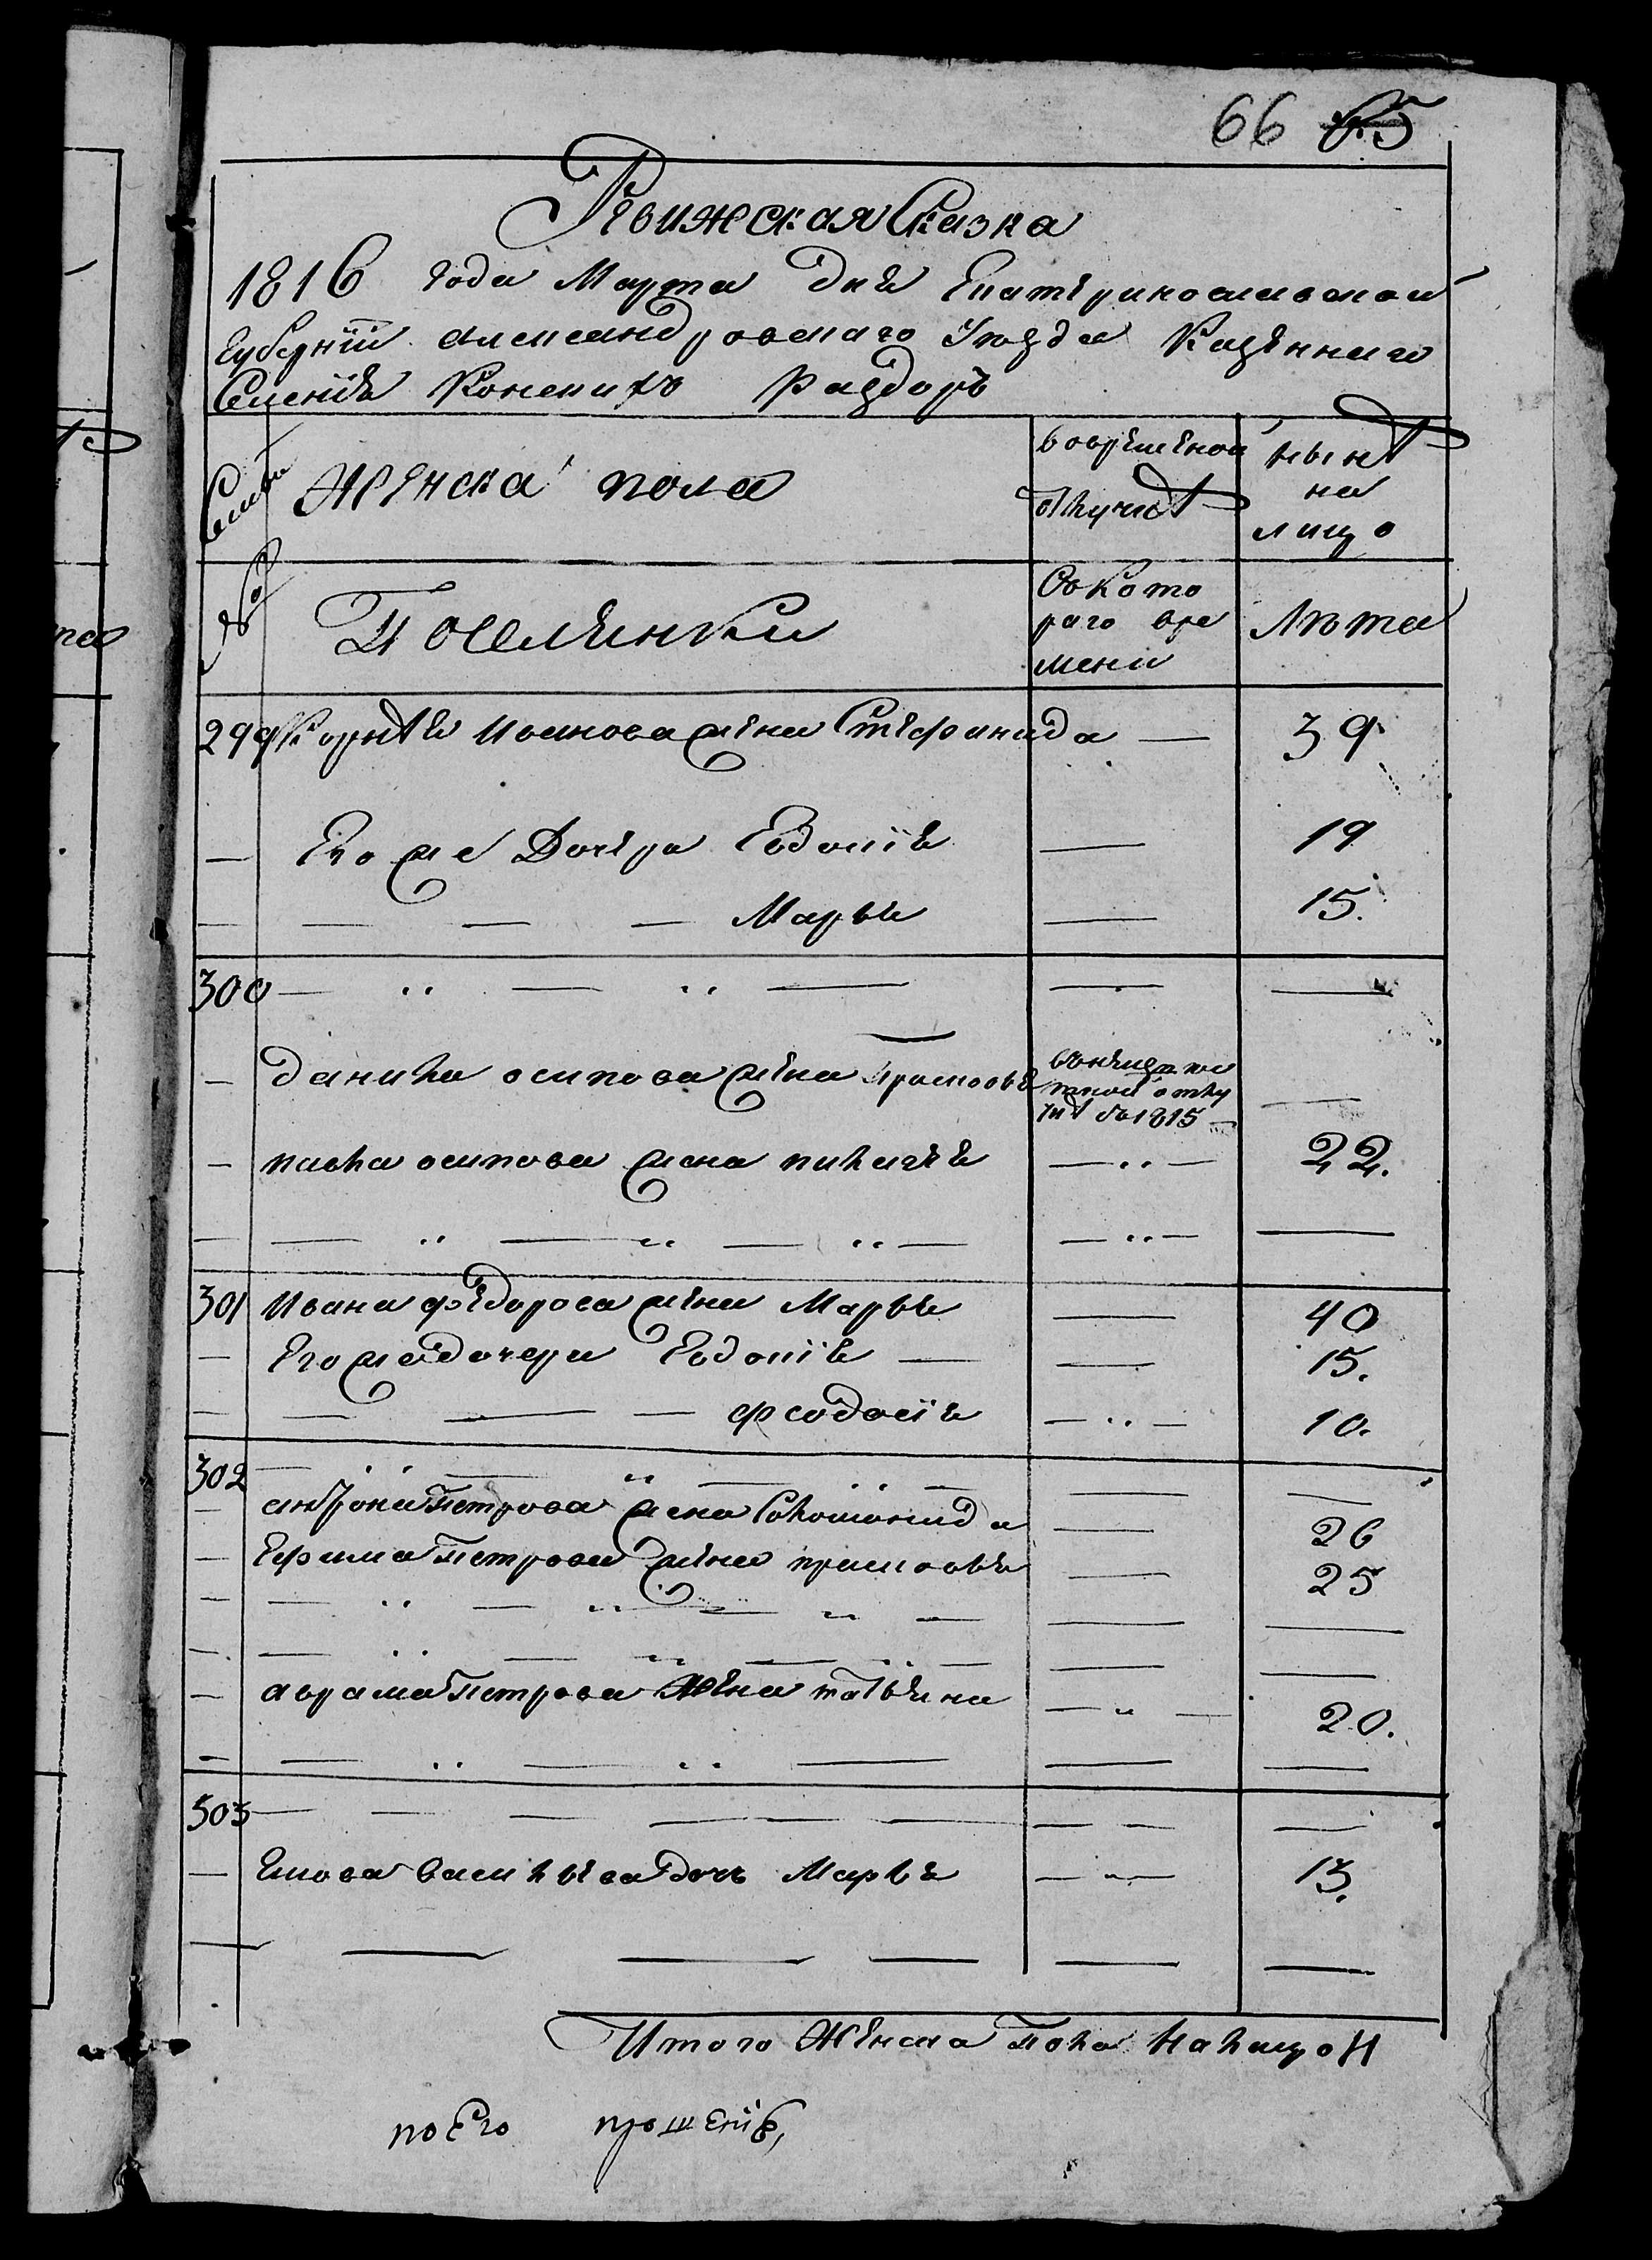 66 65
Ревижская Сказка
1816 года Марта дня Екатеринославской
Губернiи Александровскаго Уѣзда Казеннаго
Селенiя Конскихъ Раздоръ
Семьи Женска пола вовременой отлучкѣ нынѣ на лицо
№ Поселянки Съ кото раго вре мени Лѣта
299 Корнѣя Иванова жена Стефанида — 39
— Его же Дочери Евдокiя — 19
— — — — Марья — 15.
300 — " — " — — —
— данила осипова жена прасковья 1815 —
— павла осипова жена пилагея — " — 22.
— — " — " — " — — " — —
301 Ивана федорова жена Марья — 40
— Его же дочери Евдокiя — — 15.
— — — — феодосiя — " — 10.
302 — " — " — " — — —
— андрона Петрова жена Соломонида — 26
— Ефима Петрова жена прасковья — 25
— — " — " — " — — —
— — " — " — " — — —
— аврама Петрова жена татьяна — " — 20.
— — " — " — — —
303 — — — — — — — —
— васильева дочь Марья — " — 13.
— — — — — —
Итого Женска пола налицо
по его прошенiю,